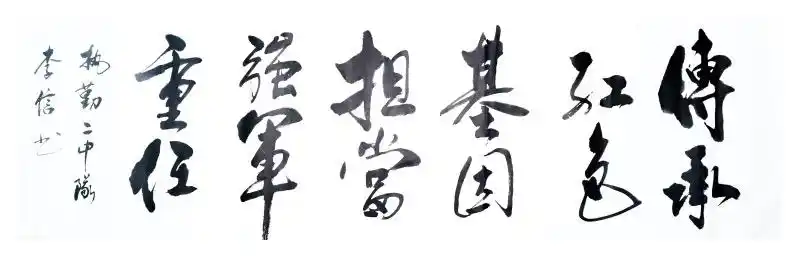 傳承
紅色
基因
担當
强軍
重任
執勤二中隊
李信书